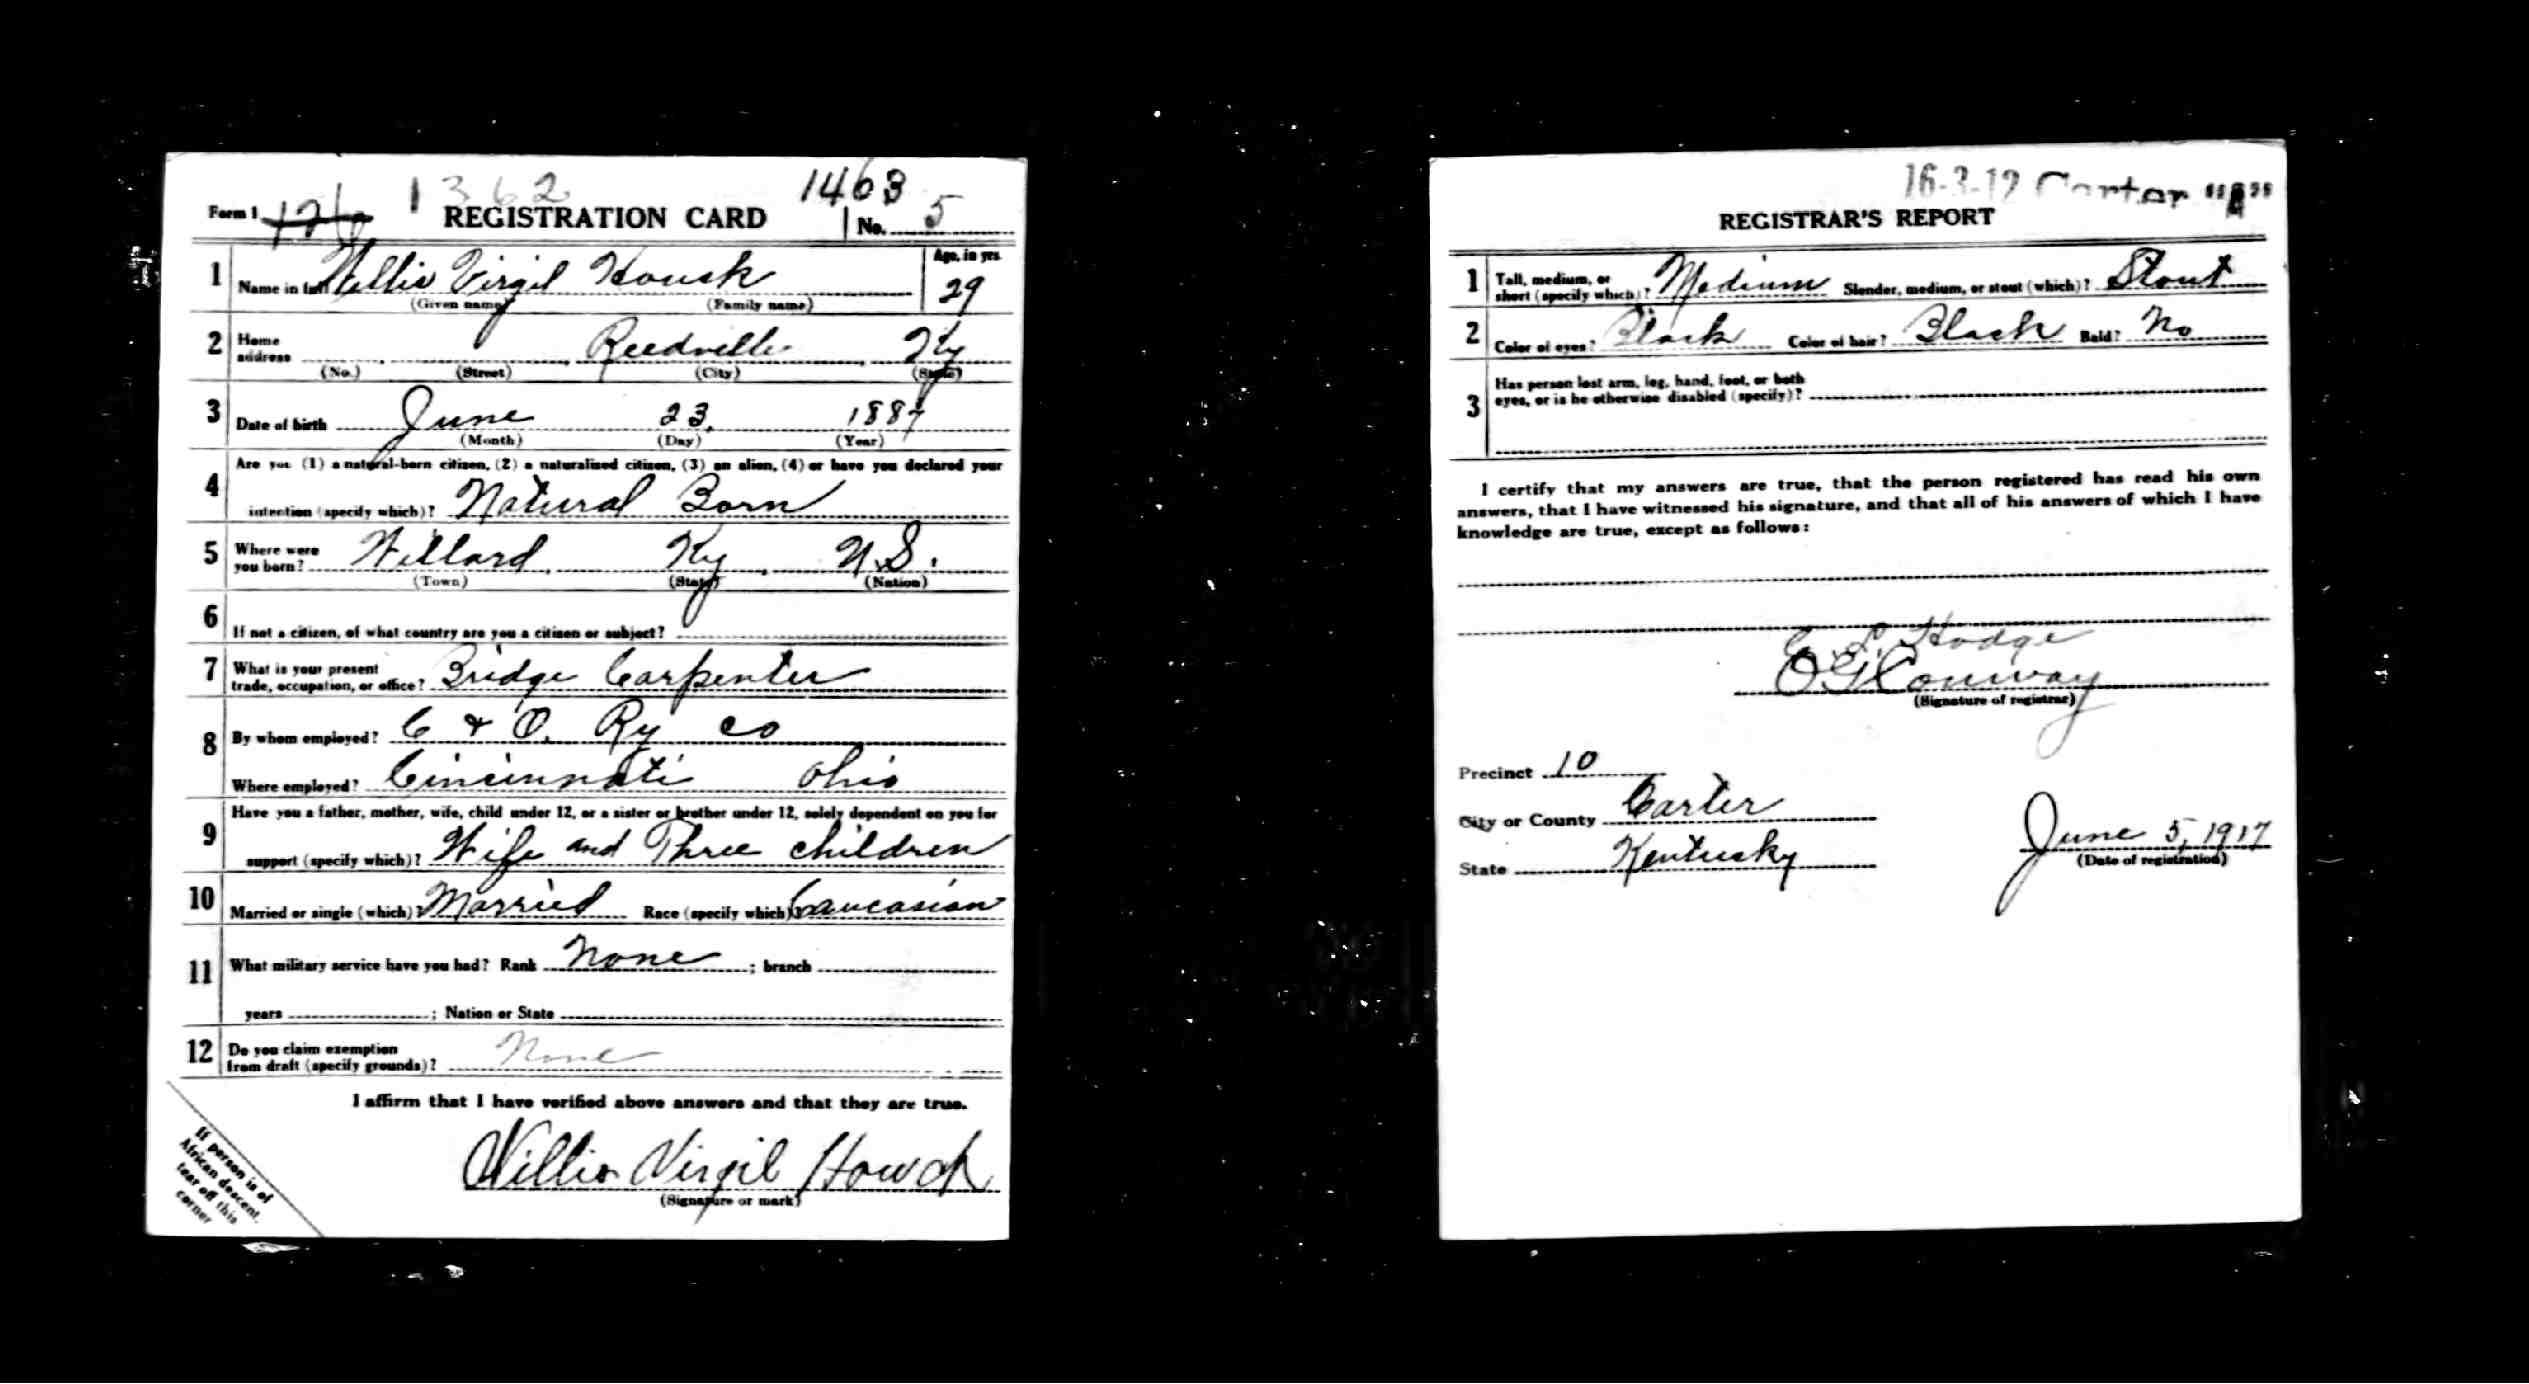 1362 1463
Form 1 126 REGISTRATION CARD No. 5
1 Name in full Willis Virgil Houck Age, in yrs. 29
(Given name) (Family name)
2 Home address Reedville Ky
(No.) (Street) (City) (State)
3 Date of birth June 23, 1887
(Month) (Day) (Year)
4 Are you (1) a natural-born citizen, (2) a naturalized citizen, (3) an alien, (4) or have you declared your
intention (specify which)? Natural Born
5 Where were you born? Willard, Ky, U.S.
(Town) (State) (Nation)
6 If not a citizen, of what country are you a citizen or subject?
7 What is your present
trade, occupation, or office? Bridge Carpenter
8 By whom employed? C & O. Ry Co
Where employed? Cincinnati Ohio
9 Have you a father, mother, wife, child under 12, or a sister or brother under 12, solely dependent on you for
support (specify which)? Wife and Three children
10 Married or single (which)? Married Race (specify which)? Caucasian
11 What military service have you had? Rank None ; branch
years ; Nation or State
12 Do you claim exemption
from draft (specify grounds)? None
I affirm that I have verified above answers and that they are true.
Willis Virgil Houck
(Signature or mark)
If person is of
African descent,
tear off this
corner
16-3-12 Carter "A"
REGISTRAR'S REPORT
1 Tall, medium, or
short (specify which)? Medium Slender, medium, or stout (which)? Stout
2 Color of eyes? Black Color of hair? Black Bald? No
3 Has person lost arm, leg, hand, foot, or both
eyes, or is he otherwise disabled (specify)?
I certify that my answers are true, that the person registered has read his own
answers, that I have witnessed his signature, and that all of his answers of which I have
knowledge are true, except as follows:
E. L. Hodge
O G Conway
(Signature of registrar)
Precinct 10
City or County Carter
State Kentucky
June 5, 1917
(Date of registration)